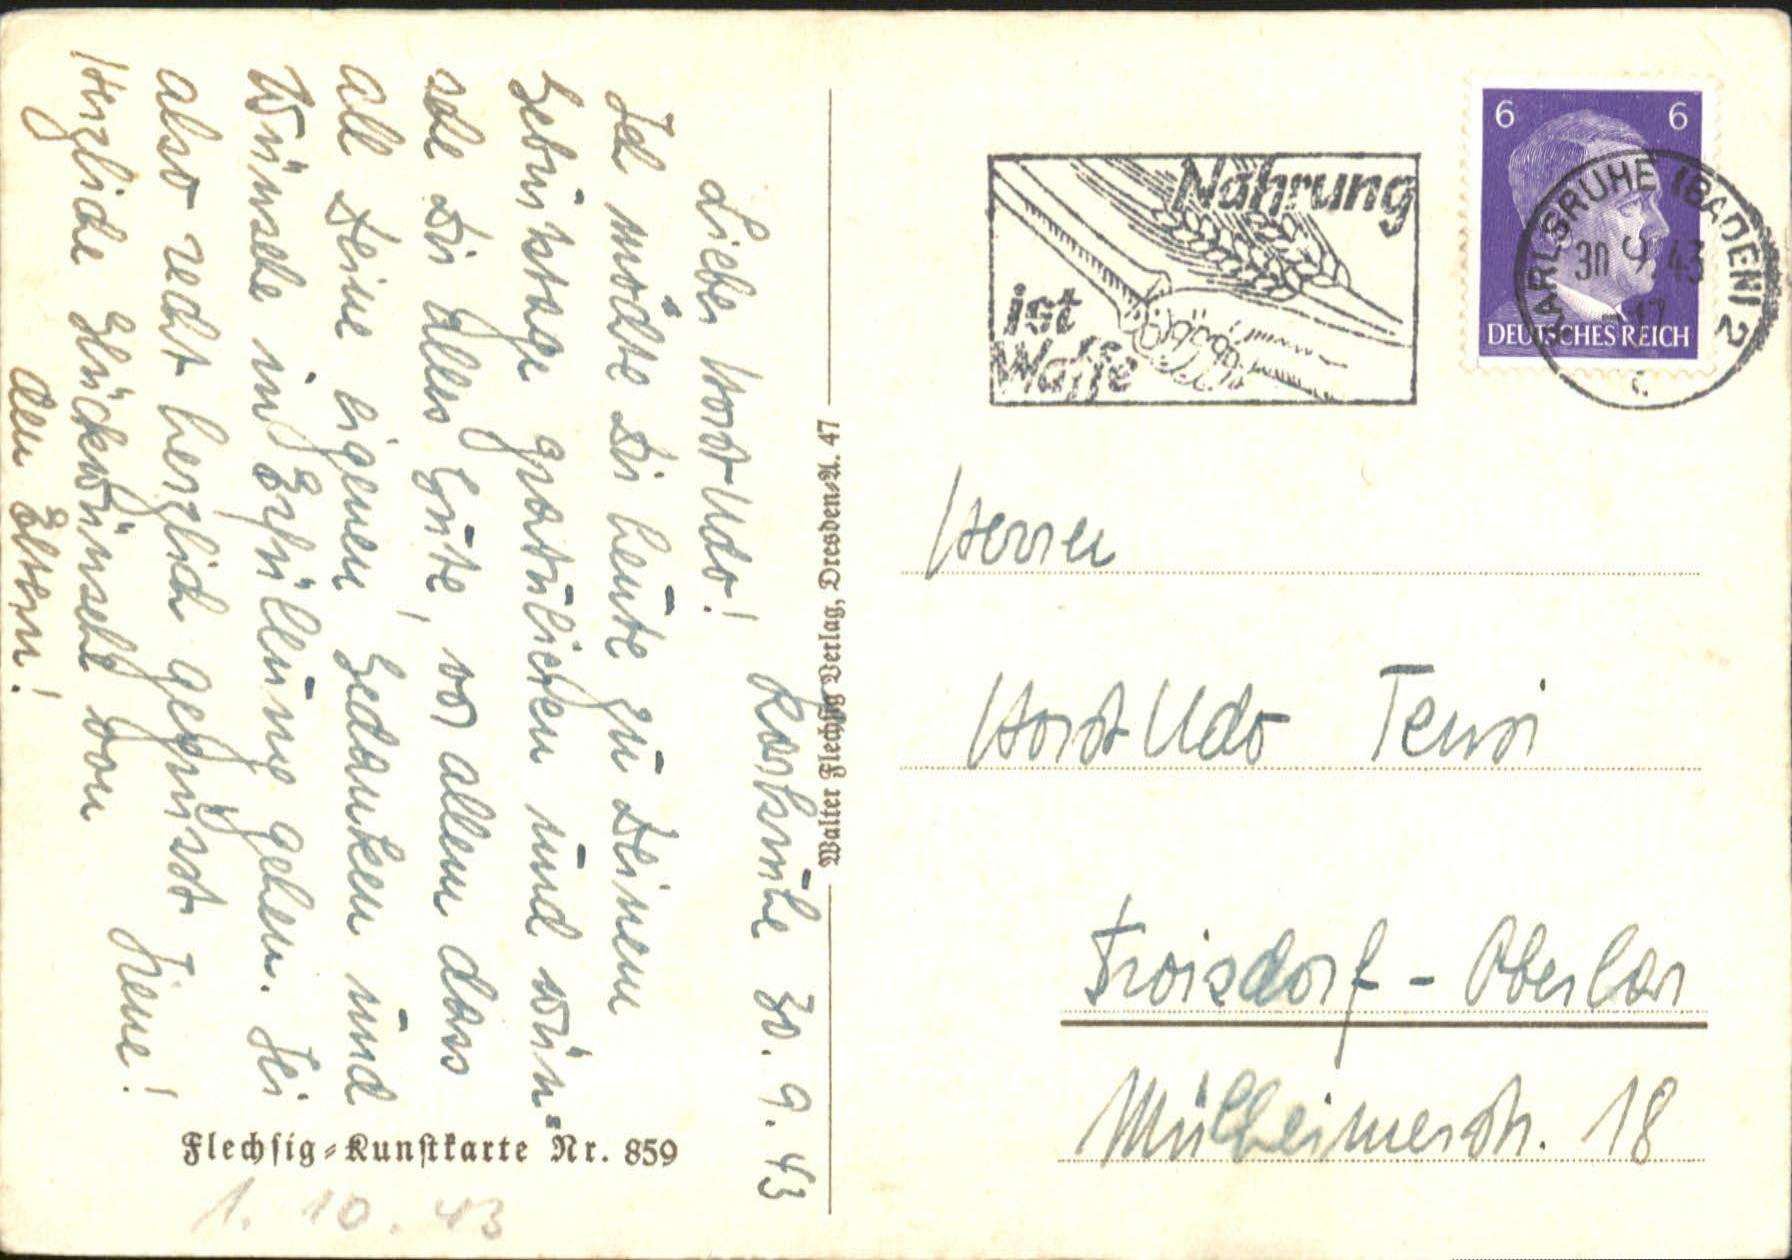 Karlsruhe 30. 9. 43
Lieber Horst Udo!
Ich möchte Dir heute zu Deinem
Geburtstage gratulieren und wün-
sche Dir alles Gute, vor allem dass
all Deine eigenen Gedanken und
Wünsche in Erfüllung gehen. Sei
also recht herzlich gegrüsst
Herzliche Glückwünsche von
den Eltern!
Flechsig-Kunstkarte Nr. 859
1. 10. 43
Walter Flechsig Verlag, Dresden-A. 47
Nahrung
ist
Waffe
6 6
DEUTSCHES REICH
KARLSRUHE (BADEN) 2
30 9.43
Herrn
Horst Udo
Troisdorf - Oberlar
Mülheimerstr. 18